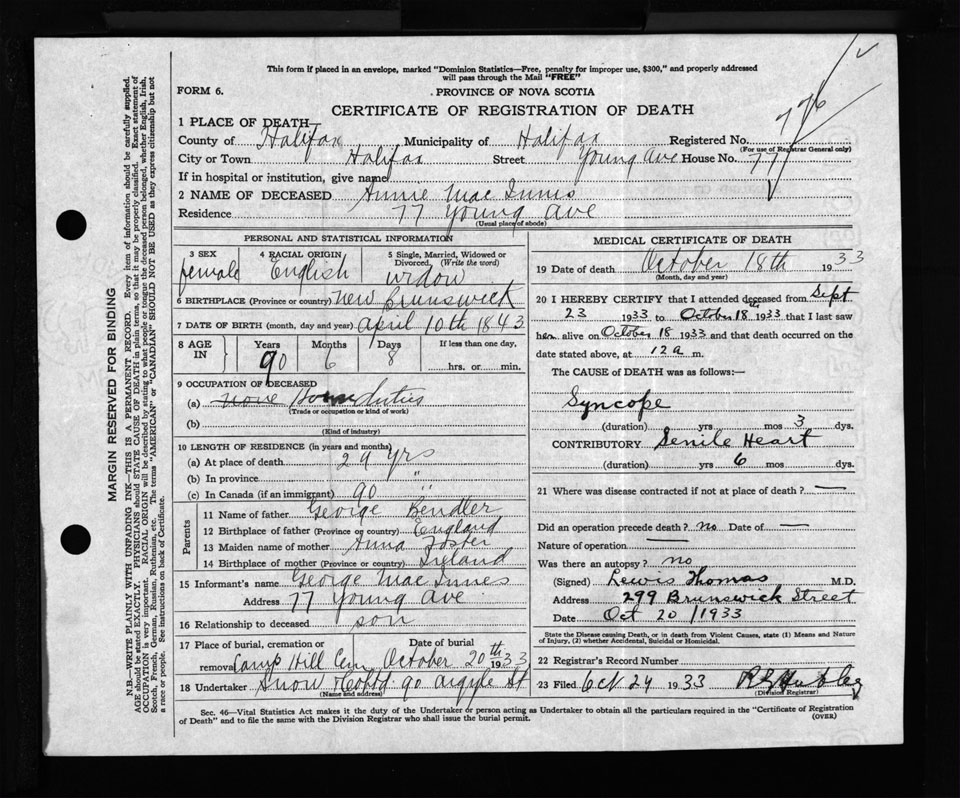 This form if placed in an envelope, marked "Dominion Statistics—Free, penalty for improper use, $300," and properly addressed
will pass through the Mail "FREE"
FORM 6.
PROVINCE OF NOVA SCOTIA
CERTIFICATE OF REGISTRATION OF DEATH
776
1 PLACE OF DEATH—
County of Halifax Municipality of Halifax Registered No.
(For use of Registrar General only)
City or Town Halifax Street Young Ave House No. 77
If in hospital or institution, give name
2 NAME OF DECEASED Annie Mac Innis
Residence 77 Young Ave
(Usual place of abode)
PERSONAL AND STATISTICAL INFORMATION
3 SEX 4 RACIAL ORIGIN 5 Single, Married, Widowed or
Divorced, (Write the word)
female English widow
6 BIRTHPLACE (Province or country) New Brunswick
7 DATE OF BIRTH (month, day and year) April 10th 1843
8 AGE IN Years Months Days If less than one day,
90 6 8 hrs. or min.
9 OCCUPATION OF DECEASED
(a) none Home duties
(Trade or occupation or kind of work)
(b)
(Kind of industry)
10 LENGTH OF RESIDENCE (in years and months)
(a) At place of death 29 yrs
(b) In province "
(c) In Canada (if an immigrant) 90 "
Parents
11 Name of father George Bendler
12 Birthplace of father (Province or country) England
13 Maiden name of mother Anna Foster
14 Birthplace of mother (Province or country) Ireland
15 Informant's name George Mac Innes
Address 77 Young Ave
16 Relationship to deceased son
17 Place of burial, cremation or Date of burial
removal Camp Hill Cem October 20th 1933
18 Undertaker Snow & Co Ltd 90 Argyle St
(Name and address)
MEDICAL CERTIFICATE OF DEATH
19 Date of death October 18th 1933
(Month, day and year)
20 I HEREBY CERTIFY that I attended deceased from Sept
23 1933 to October 18th 1933 that I last saw
her alive on October 18 1933 and that death occurred on the
date stated above, at 12 a m.
The CAUSE of DEATH was as follows:—
Syncope
(duration) yrs mos 3 dys.
CONTRIBUTORY Senile Heart
(duration) yrs 6 mos dys.
21 Where was disease contracted if not at place of death? —
Did an operation precede death? no Date of —
Nature of operation —
Was there an autopsy? no
(Signed) Lewis Thomas M.D.
Address 299 Brunswick Street
Date Oct 20 / 1933
State the Disease causing Death, or in death from Violent Causes, state (1) Means and Nature
of Injury, (2) whether Accidental, Suicidal or Homicidal.
22 Registrar's Record Number
23 Filed Oct 24 1933
(Division Registrar)
Sec. 46—Vital Statistics Act makes it the duty of the Undertaker or person acting as Undertaker to obtain all the particulars required in the "Certificate of Registration
of Death" and to file the same with the Division Registrar who shall issue the burial permit.
(OVER)
MARGIN RESERVED FOR BINDING
N.B.—WRITE PLAINLY WITH UNFADING INK—THIS IS A PERMANENT RECORD. Every item of information should be carefully supplied.
AGE should be stated EXACTLY. PHYSICIANS should STATE CAUSE OF DEATH in plain terms, so that it may be properly classified. Exact statement of
OCCUPATION is very important. RACIAL ORIGIN will be described by stating to what people or tongue the deceased person belonged, whether English, Irish,
Scotch, French, German, Russian, Ruthenian, etc. The terms "AMERICAN" or "CANADIAN" SHOULD NOT BE USED as they express citizenship but not
a race or people. See instructions on back of Certificate.